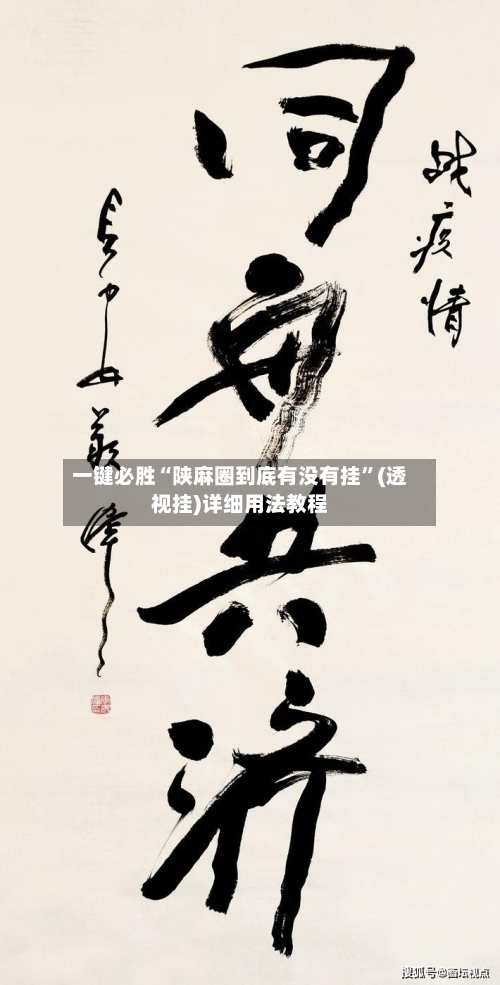 战疫情
同舟共济
一键必胜“陕麻圈到底有没有挂”(透
视挂)详细用法教程
搜狐号@画坛视点